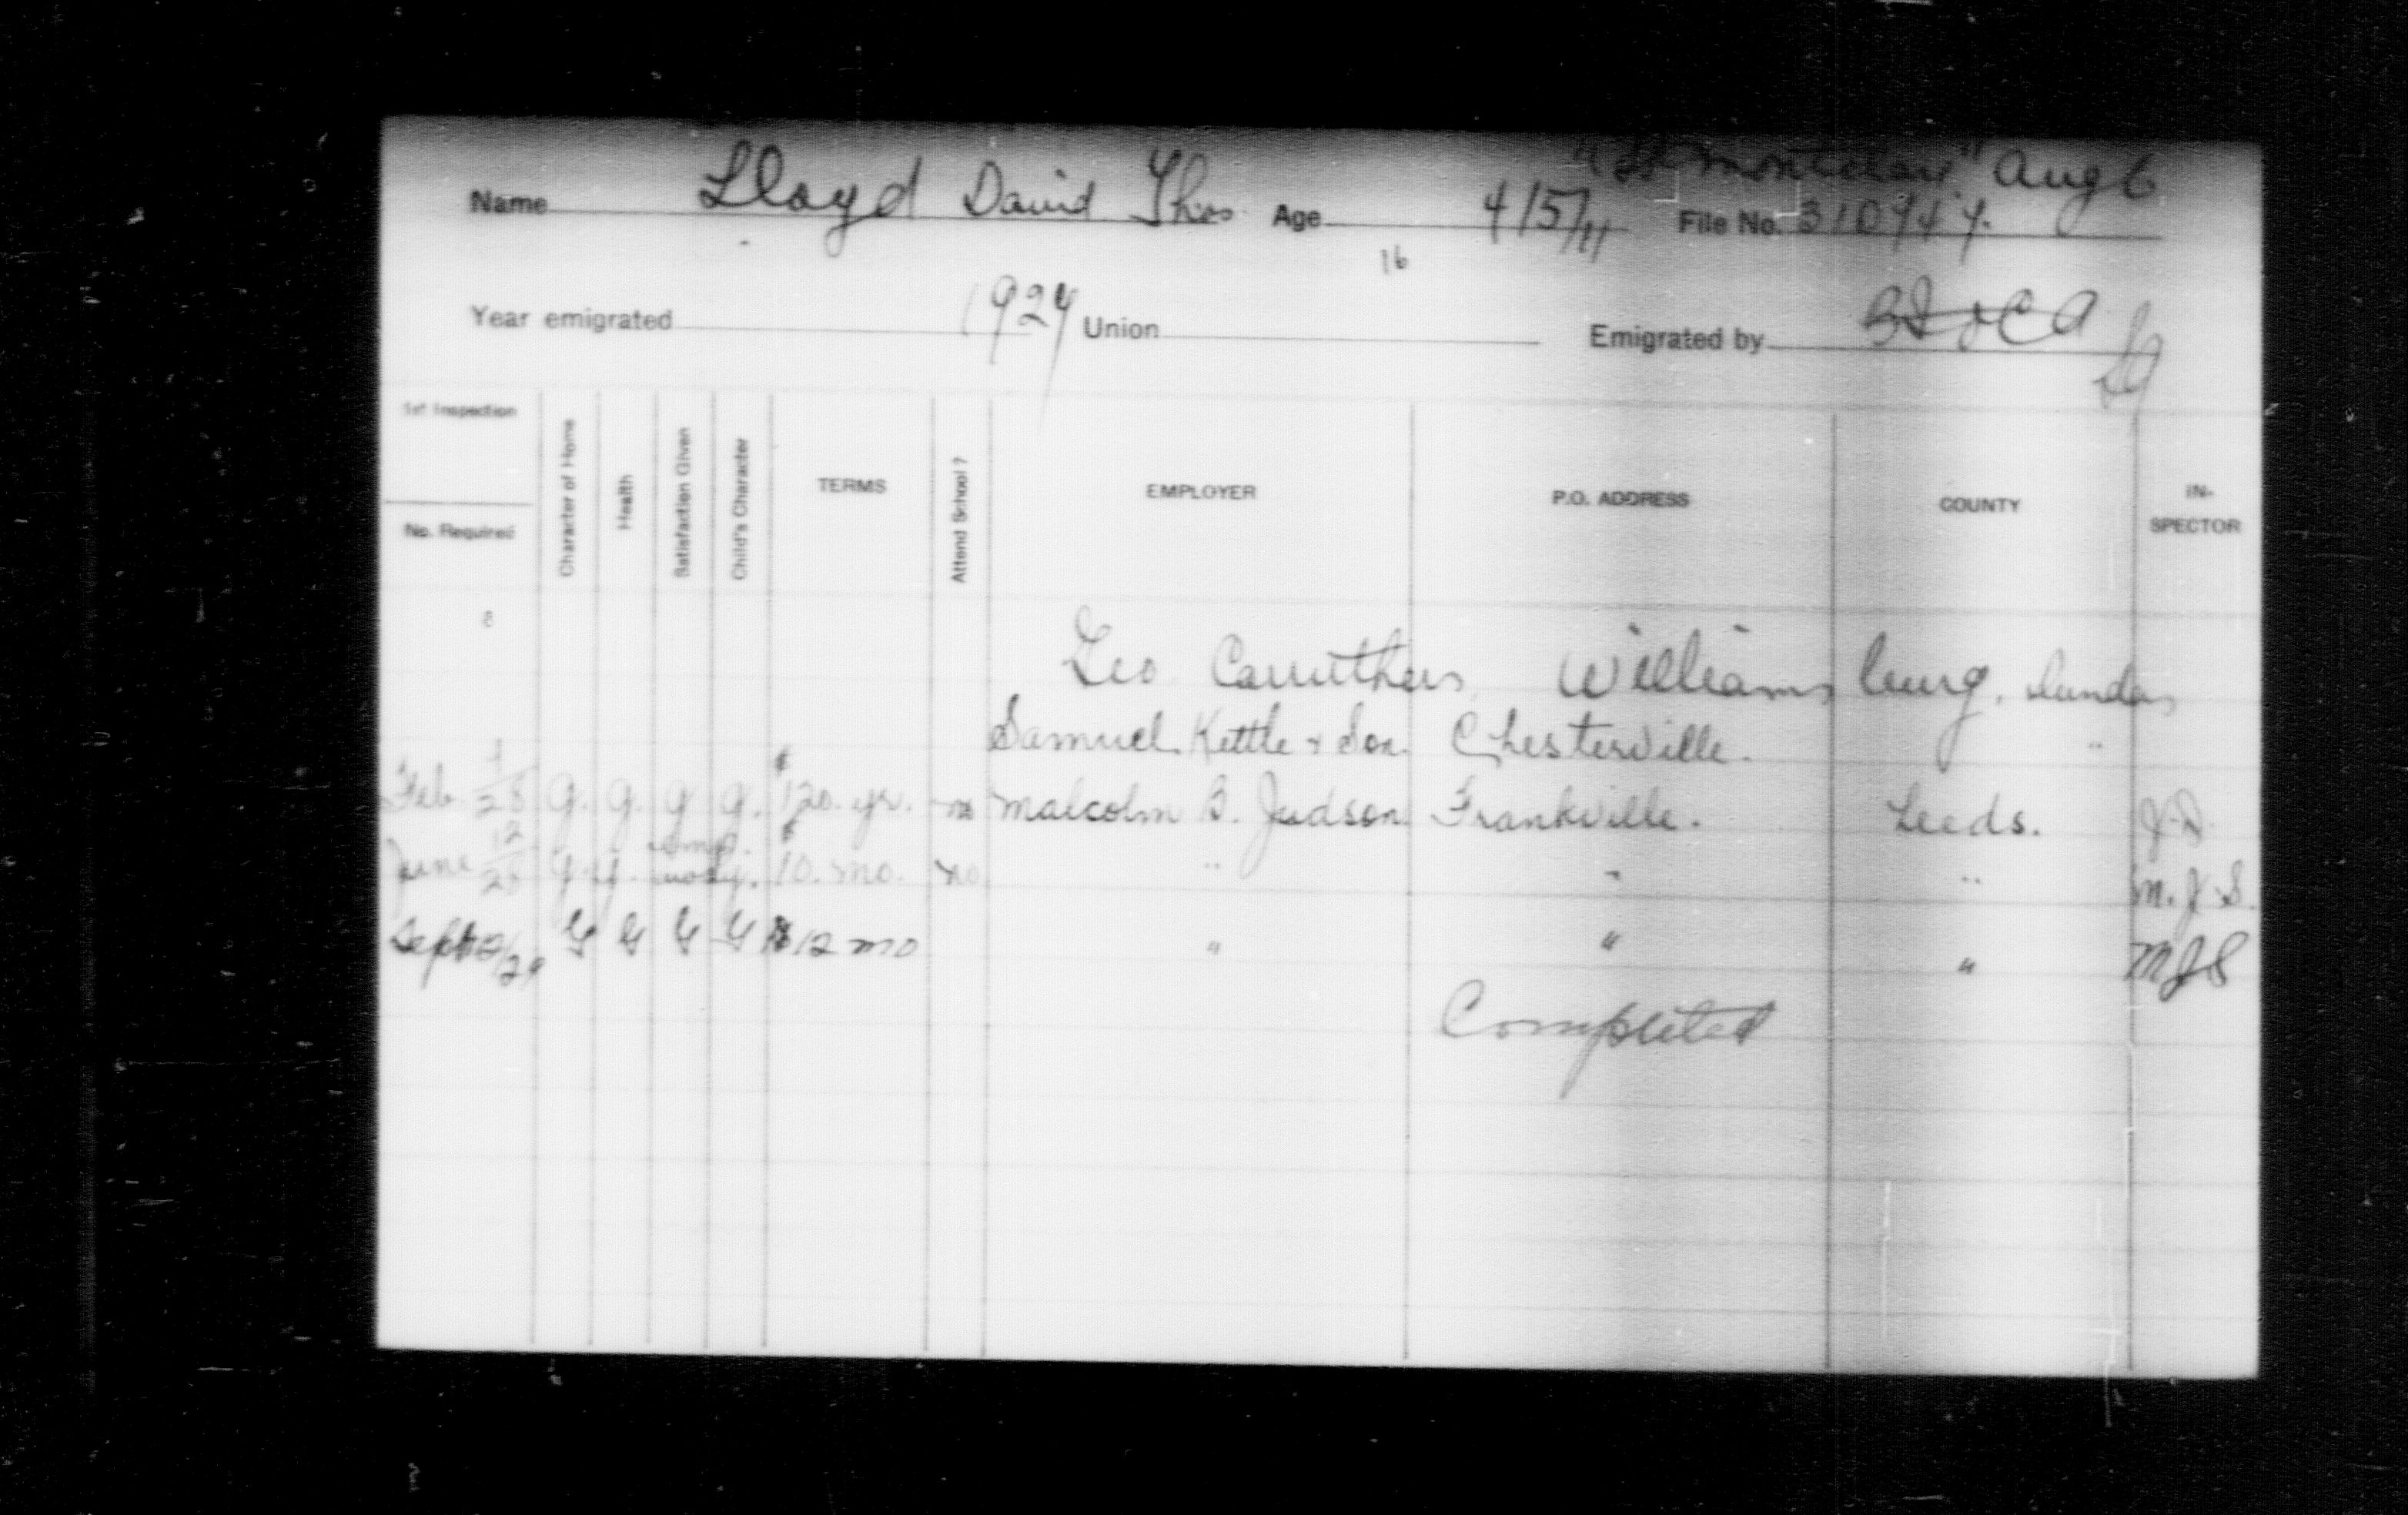 "SS Montclare" Aug 6
Name Lloyd David Thos Age 4/5/11 File No.
16
Year emigrated 1924 Union Emigrated by
1st Inspection
No. Required
Character of Home
Health
Satisfaction Given
Child's Character
TERMS
Attend School?
EMPLOYER
P.O. ADDRESS
COUNTY
IN-
SPECTOR
8
Geo Carruthers, Williamsburg, Dundas
Samuel Kettle & Son. Chesterville. "
Feb 1/28 g. g. g g. $120. yr. no Malcolm B. Judson Frankville. Leeds. J.D.
June 12/28 g. g. g. $10. mo. no. " " " M.J.S.
Sept /29 G G G G $12 mo " " " MJS
Completed